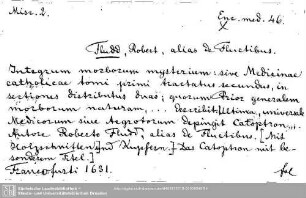 Misc. 2.
Enc. med. 46.
X
Fludd, Robert, alias de Fluctibus.
Integrum morborum mysterium: sive Medicinae
catholicae tomi primi tractatus secundus, in
sectiones distributus duas; quorum Prior generalem
morborum naturam, ... describit; Ultima, universale
Medicorum sive Aegrotorum depingit Catoptron, ...
Autore Roberto Fludd, alias de Fluctibus. [Mit
Holzschnitten und Kupfern.] [Das Catoptron mit be-
sonderem Titel.]
Francofurti 1631.
fol